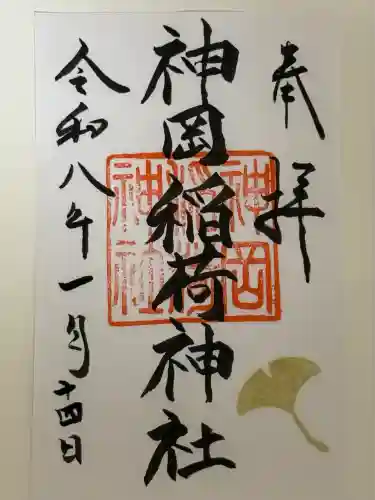 奉拝
神岡稲荷神社
令和八年一月十四日
神岡稲荷神社